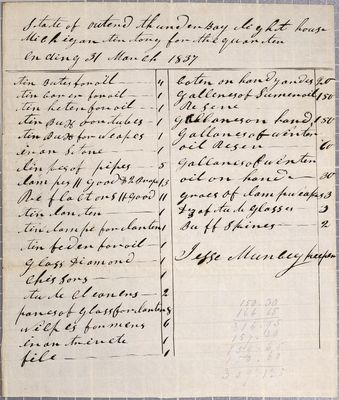 State of outend thunder Bay Light house
Michigan tending for the quarter
Ending 31 March 1837
tin Buts for oil — 4
tin Caner for oil — 1
tin heter for oil — 1
tin Box for tubes — 1
tin Box for weapes — 1
iron Stone — 1
linpes of pipes — 5
lamps 11 Good & 2 Drops 13
Reflactors 11 Good 11
tin lanten — 1
tin lampe for lanten 1
tin feder for oil — 1
Glass Diamond — 1
Chissors — 1
tude Cleaners — 2
panes of Glass for lanten 8
wilpes for mens 6
iron trincte — 1
file — 1
Coten on hand yardes 20
Gallones of Sumer oil 150
Resene
Gallones on hand 150
Gallones of winter
oil Resen — 60
Gallones of winter
oil on hand — 30
groes of lamp weapes 3
Dz of tude Glasses — 3
Buff Skines — 2
Jesse Muncey keeper